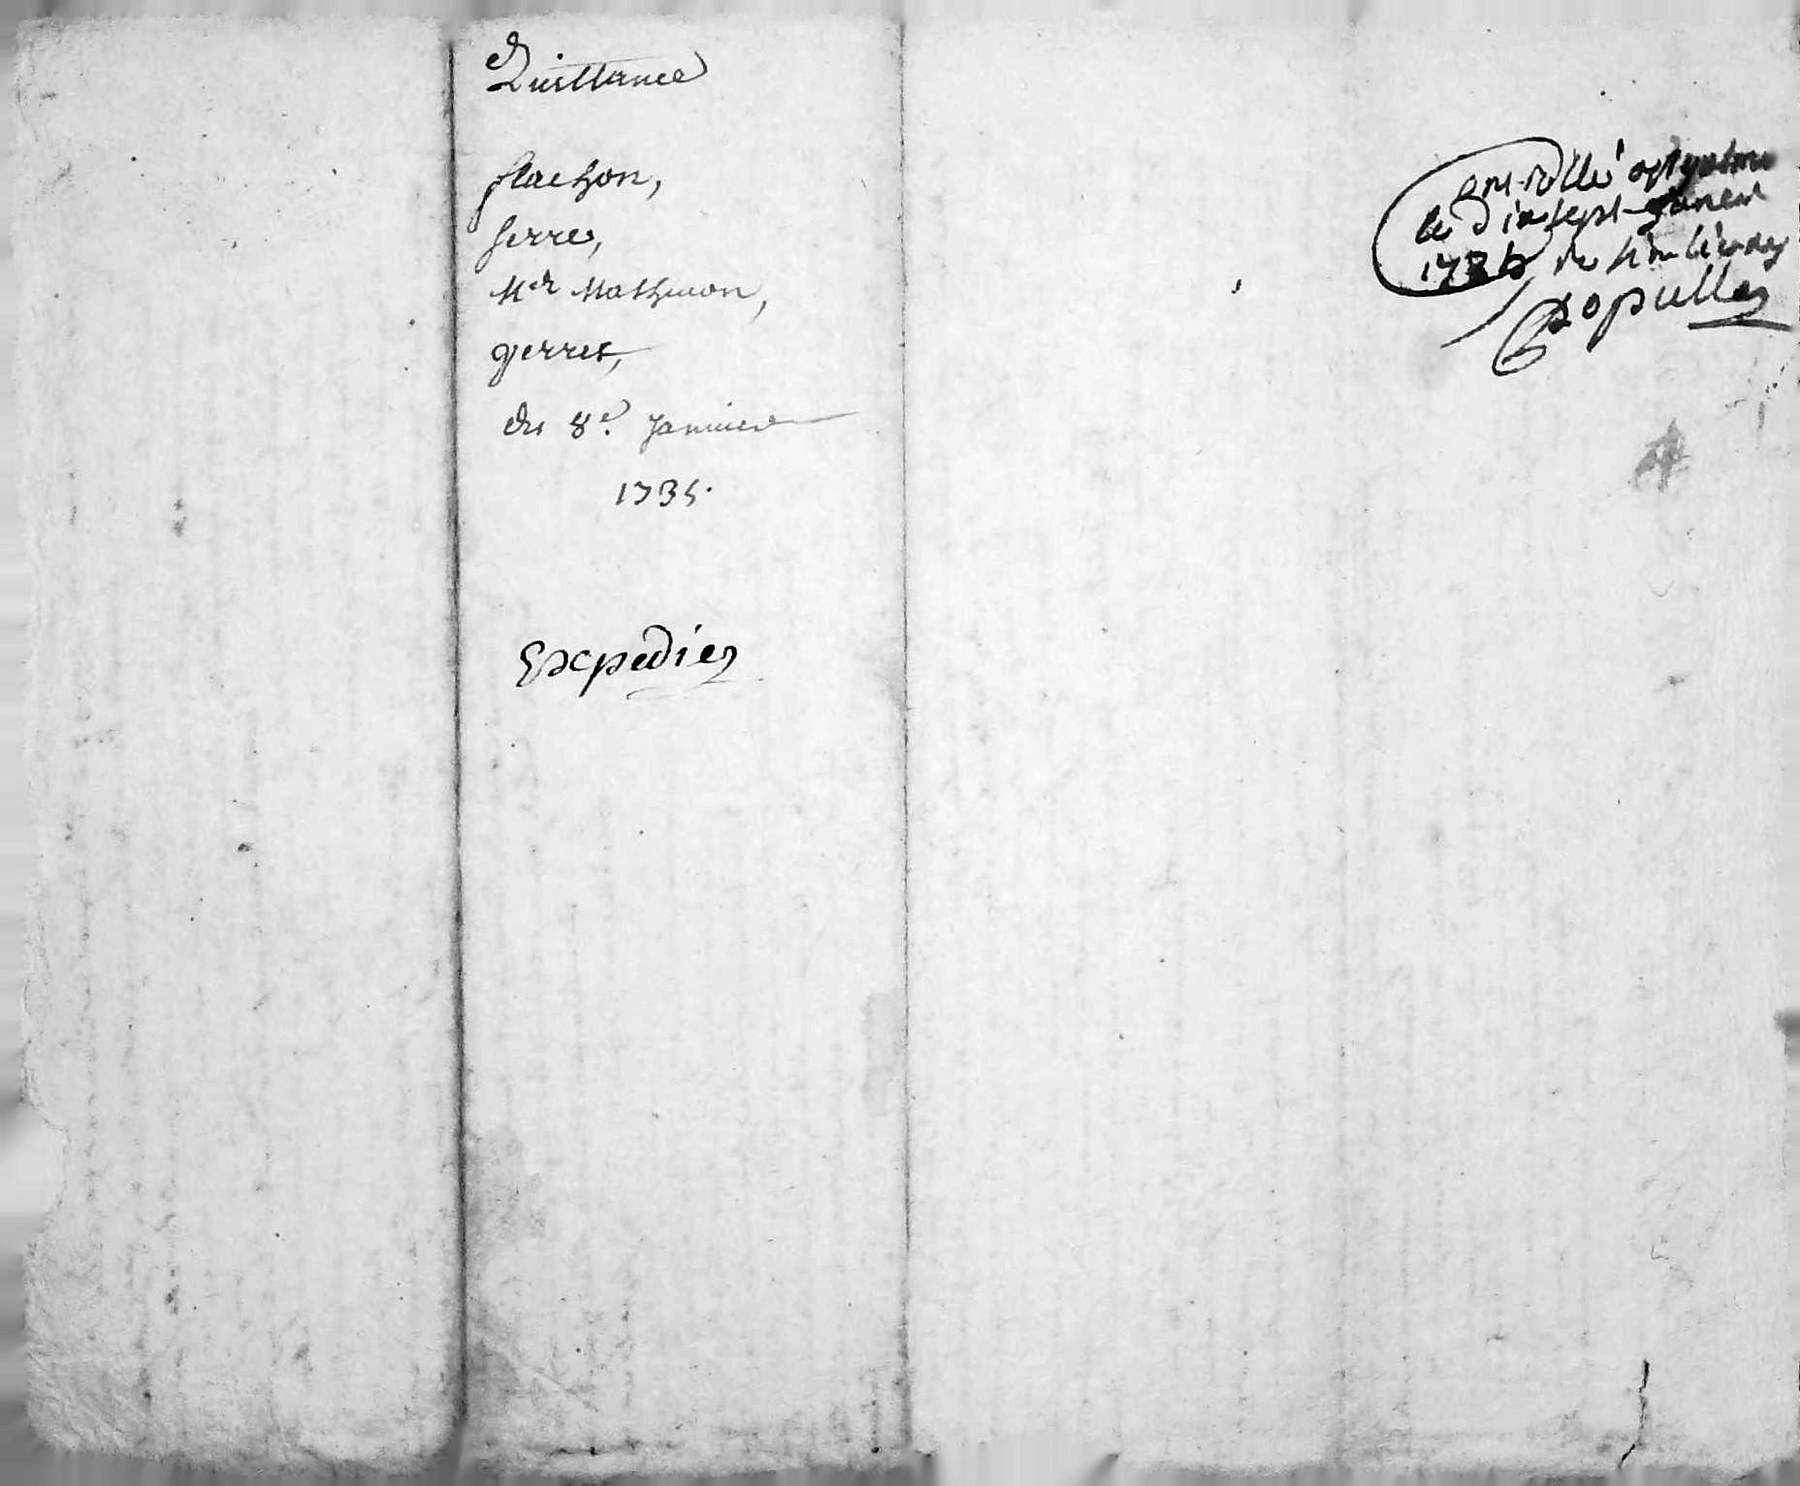 Quittance
flachon,
serre,
Mr Mathevon,
gerret,
du 8e. Janvier
1735.
Expediez
controllé
le dix sept janvier
1735
populle